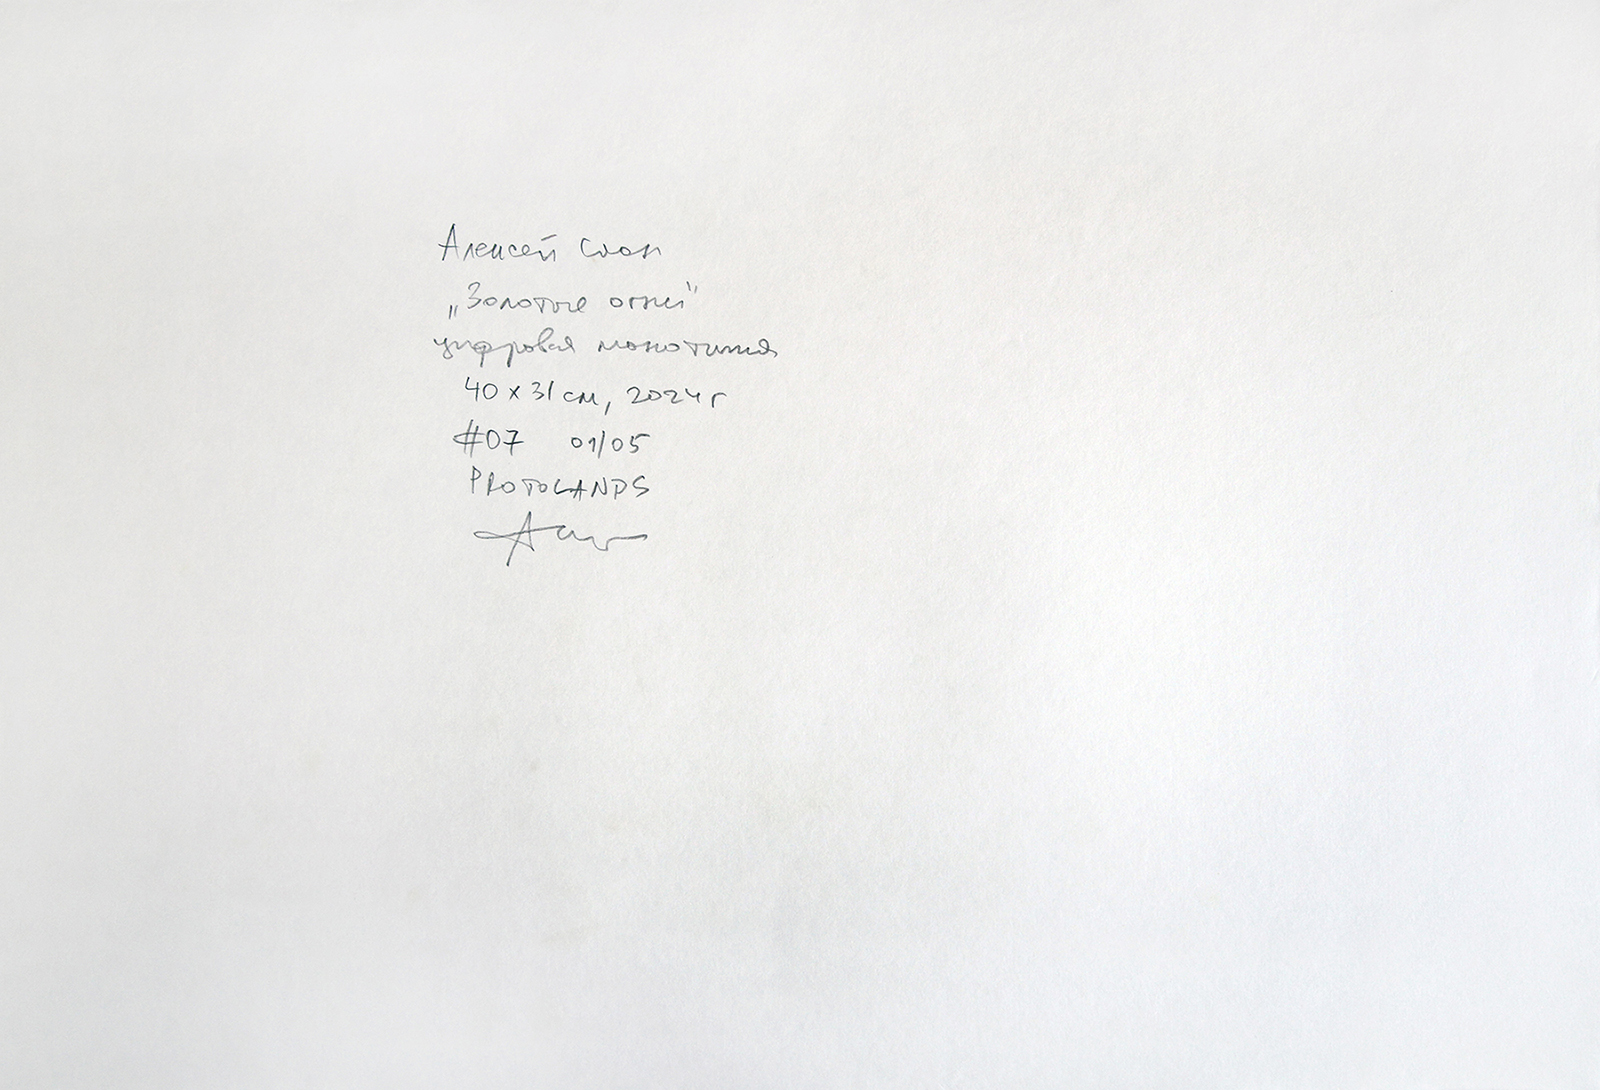 Алексей Слон
„Золотые огни"
цифровая монотипия
40 x 31 см, 2024 г
#07 01/05
PROTOLANDS